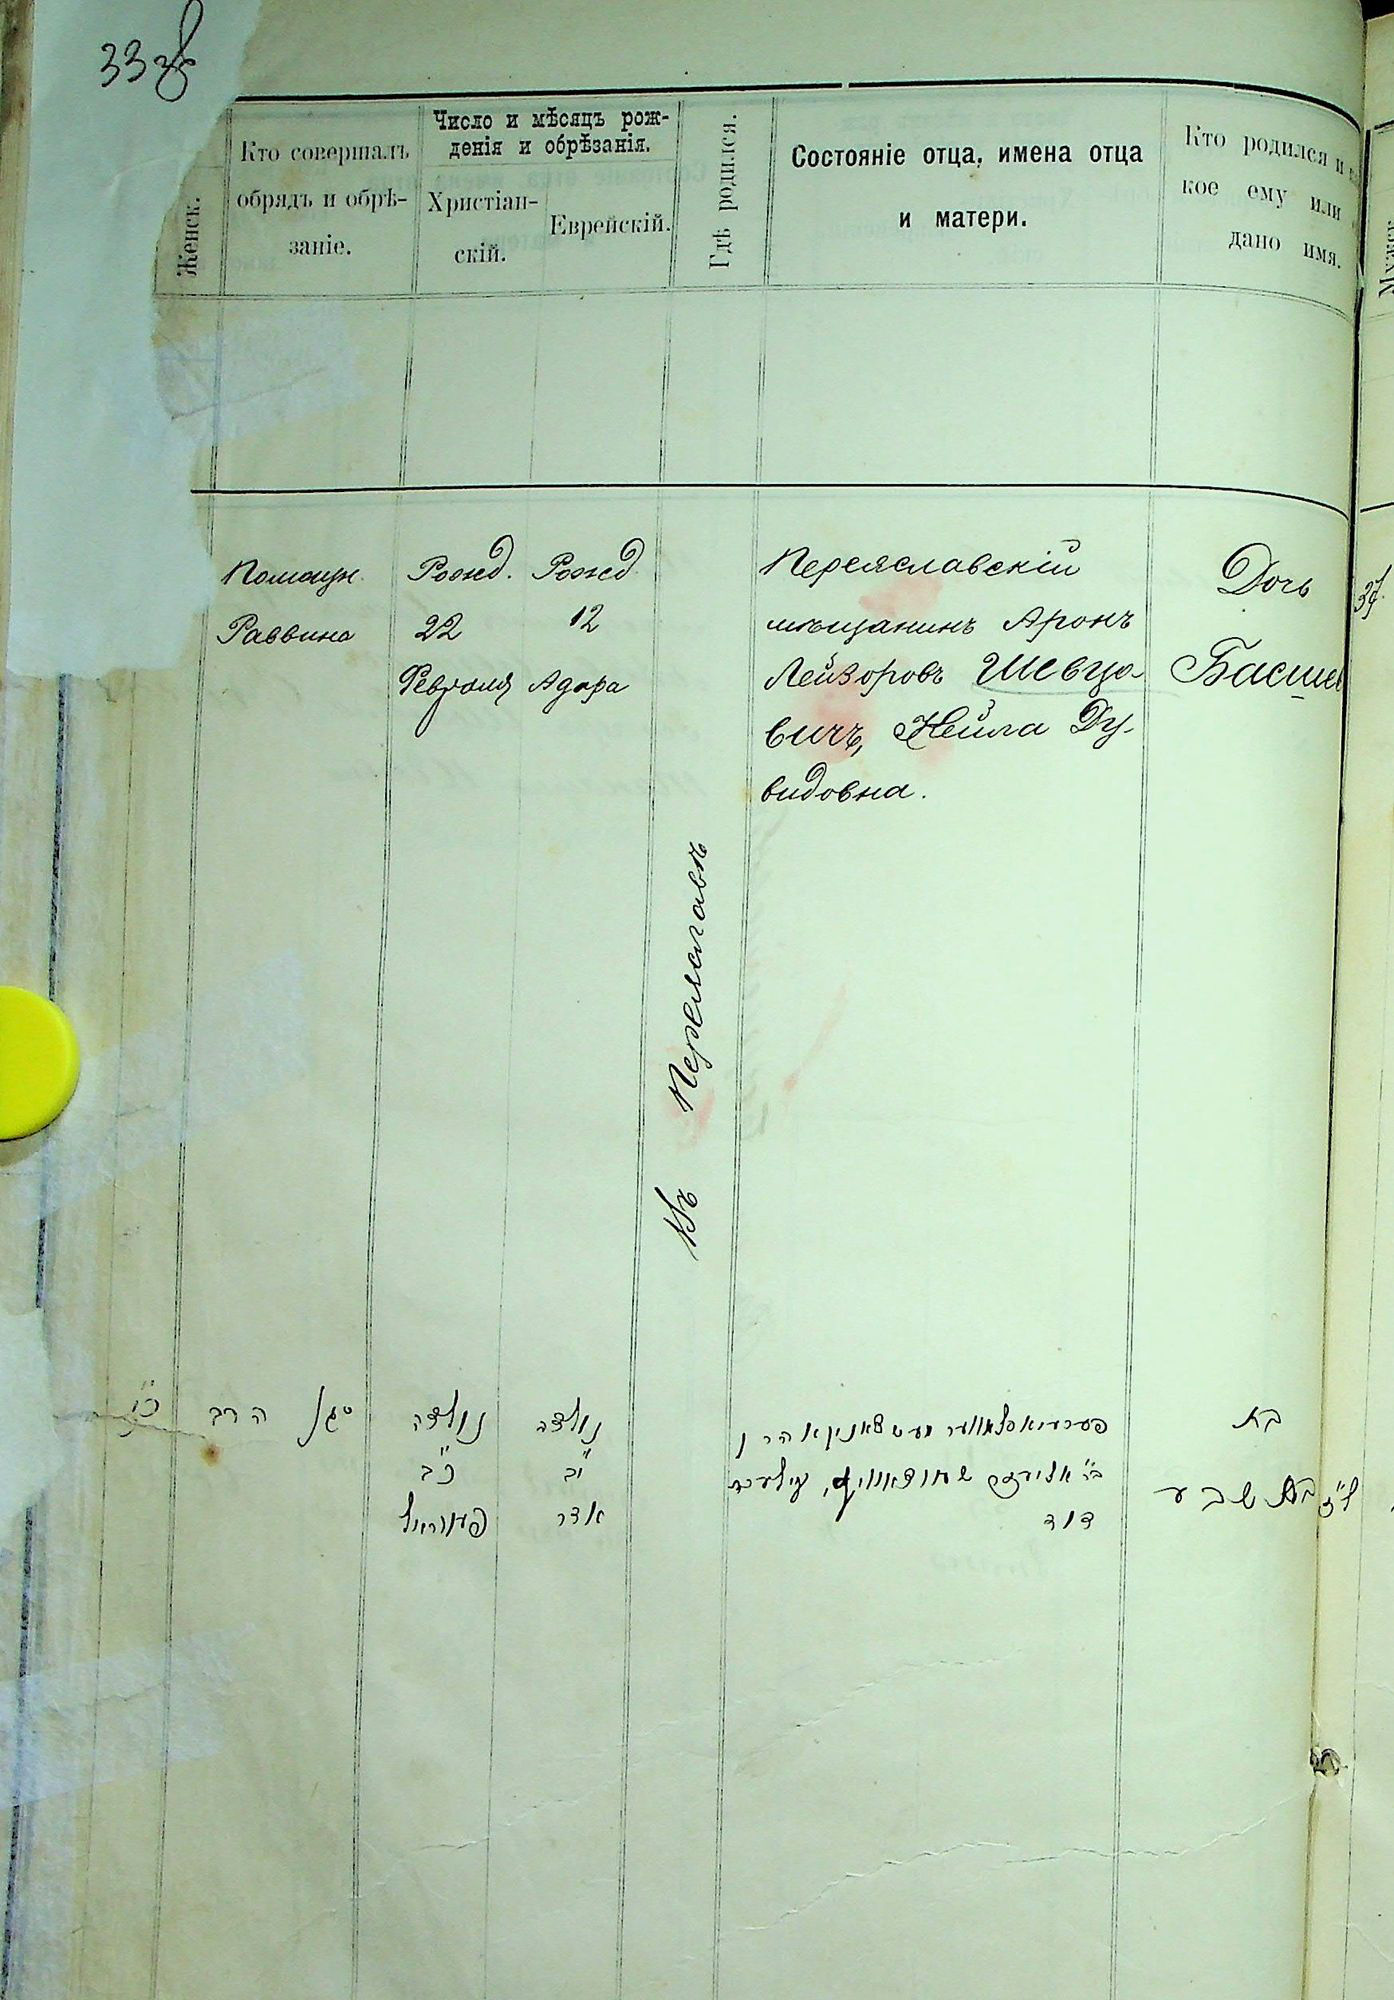 33 об
Женск.
Кто совершалъ
обрядъ и обрѣ-
заніе.
Число и мѣсяцъ рож-
денія и обрѣзанія.
Христіан-
скій.
Еврейскій.
Гдѣ родился.
Состояніе отца, имена отца
и матери.
Кто родился и
кое ему или
дано имя.
Помощн.
Раввина
Рожд.
22
Февраля
Рожд
12
Адара
Въ Переяславѣ
Переяславскій
мѣщанинъ Аронъ
Лейзоровъ Шевцо-
вичъ, Нейла Ду-
видовна.
Дочь
Басшев
37
סגן הרב
נולדה
כ"ב
פעווראיל
נולדה
י"ב
אדר
אהרן
דוד
בת
בת שבע
ל"ז